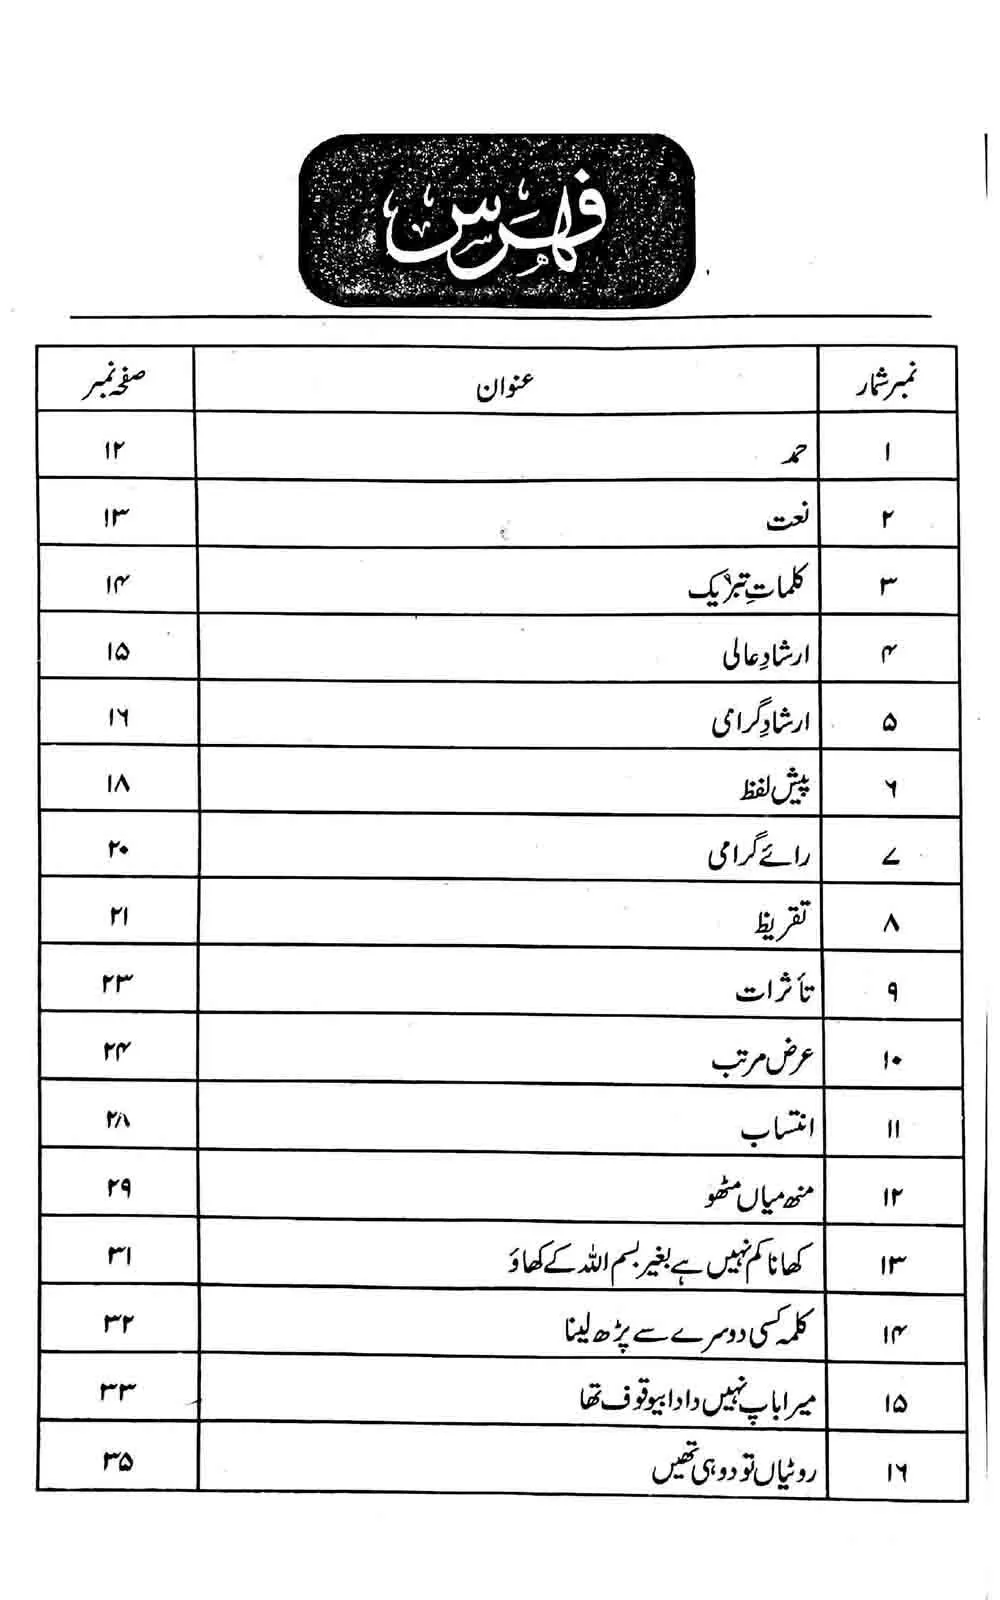 فہرس
نمبر شمار عنوان صفحہ نمبر
۱ حمد ۱۲
۲ نعت ۱۳
۳ کلماتِ تبریک ۱۴
۴ ارشادِ عالی ۱۵
۵ ارشادِ گرامی ۱۶
۶ پیش لفظ ۱۸
۷ رائے گرامی ۲۰
۸ تقریظ ۲۱
۹ تأثرات ۲۳
۱۰ عرض مرتب ۲۴
۱۱ انتساب ۲۸
۱۲ منھ میاں مٹھو ۲۹
۱۳ کھانا کم نہیں ہے بغیر بسم اللہ کے کھاؤ ۳۱
۱۴ کلمہ کسی دوسرے سے پڑھ لینا ۳۲
۱۵ میرا باپ نہیں دادا بیوقوف تھا ۳۳
۱۶ روٹیاں تو دو ہی تھیں ۳۵